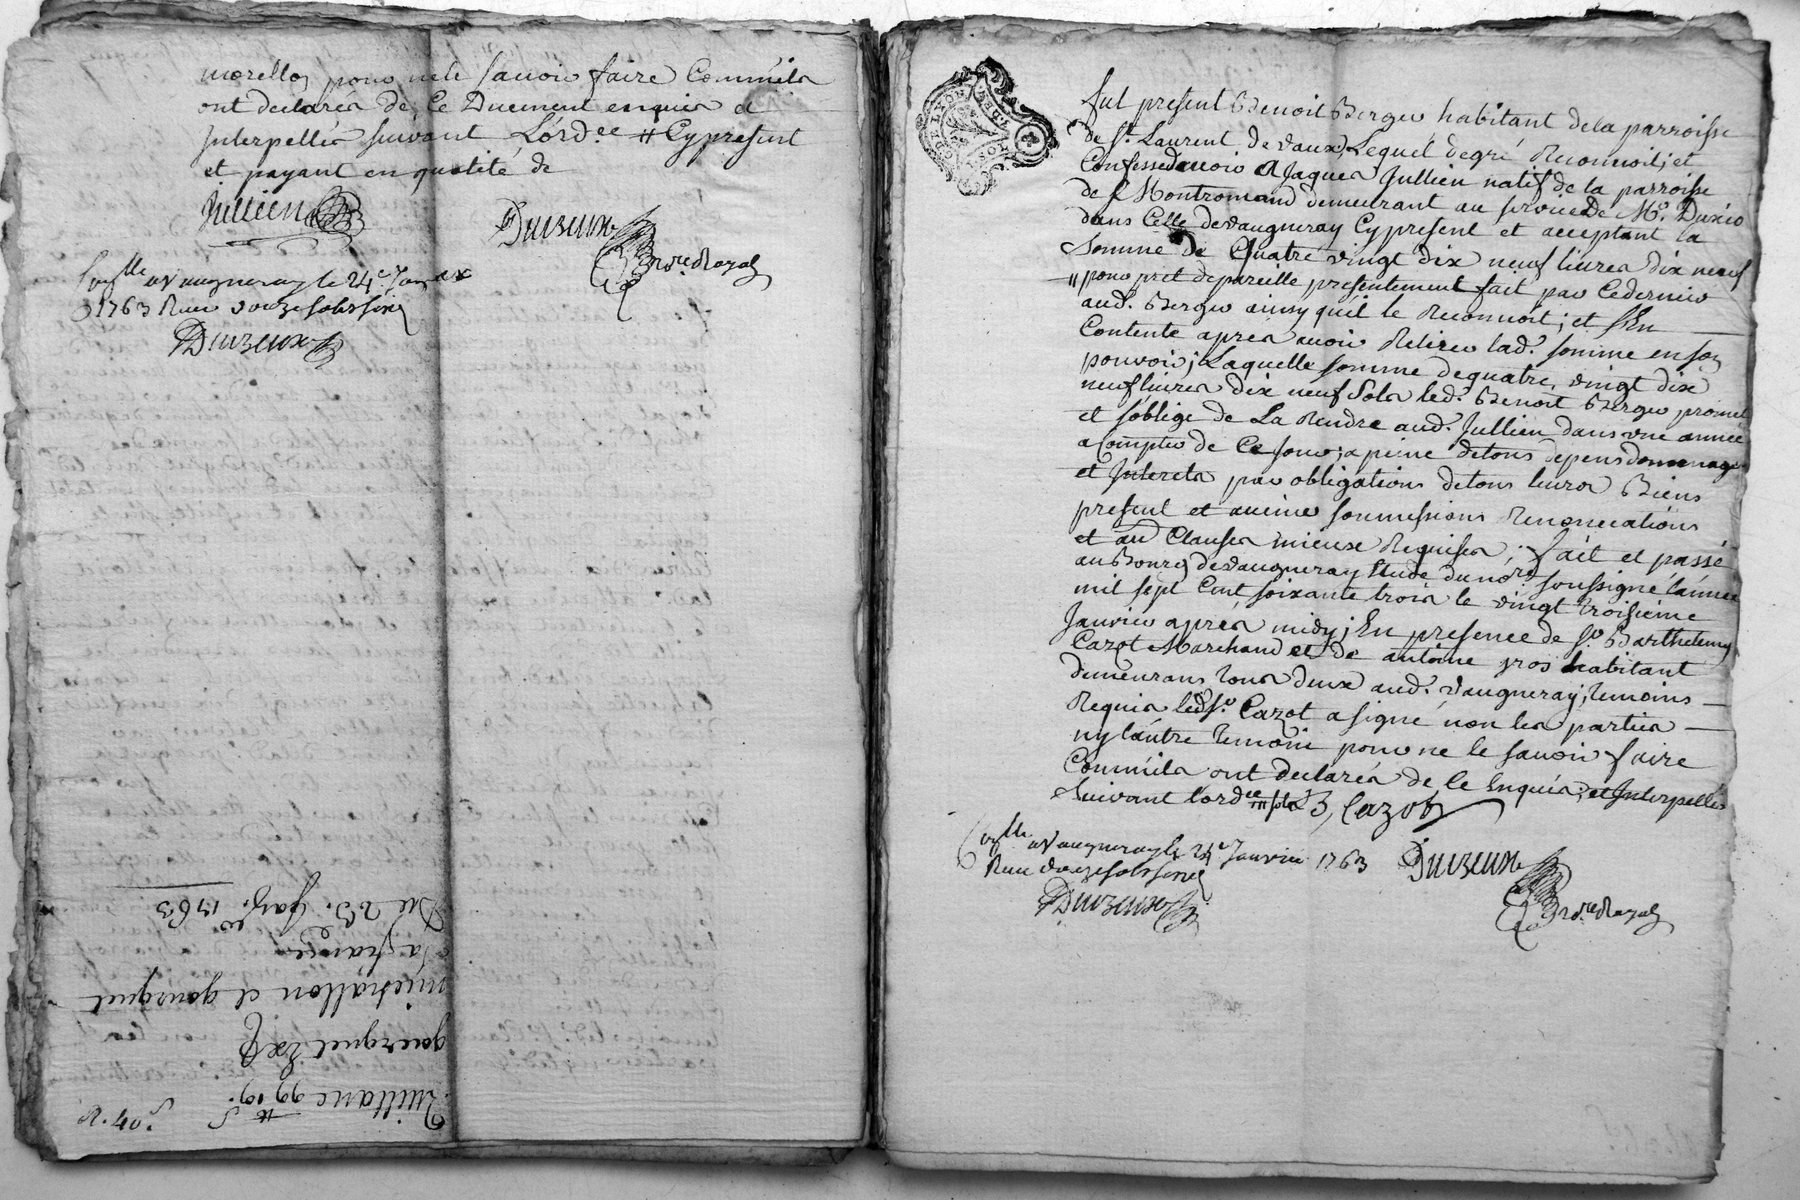 morellon pour ne le savoir faire Comm'ils
ont declarés de Ce Duement enquis et
Interpellés suivant L'ord.ce # Cy present
et payant en qualité de
Jullien
Duvzeux
No.re Royal
à Vaugneray le 24e Janv.er
1763 Reçu douze sols six d
Duvzeux
Du 23. Janv.er 1763
Lafrange
michallon et gourguet
Quittance 99 19.
fut present Benoit Berger habitant de la parroisse
de St. Laurent de Vaux, Lequel degré Reconnoit; et
Confesse devoir A Jaques Jullien natif de la parroisse
de Montromand demeurant au service De Me.
dans Celle de Vaugneray Cy present et acceptant la
Somme de Quatre vingt dix neuf livres dix neuf
# pour pret de pareille presentement fait par Ce dernier
aud. Berger ainsy quil le Reconnoit; et s'En
Contente apres avoir Retirer lad. somme en son
pouvoir; Laquelle somme de quatre, vingt dix
neuf livres dix neuf Sols led. Benoit Berger promet
et s'oblige de La Rendre aud. Jullien dans une année
a Compter de Ce jour; a peine de tous depens dommages
et Interets par obligations de tous leurs Biens
present et avenir soumissions Renonciations
et aud Clauses mieux Requises; fait et passé
au Bourg de Vaugneray Etude du no.re soussigné l'année
mil sept Cent soixante trois le vingt troisieme
Janvier après midy; En presence de Sr. Barthelemy
Cazot Marchand et de antoine gros habitant
demeurans tous deux aud. Vaugneray; temoins
Requis led. Sr. Cazot a signé non les parties
ny l'autre temoin pour ne le savoir faire
Comm'ils ont declarés de Ce Enquis, et Interpellés
Suivant l'ord.ce B, Cazot
à Vaugneray le 24e Janvier 1763
Reçu douze sols six d
Duvzeux
Duvzeux
No.re Royal